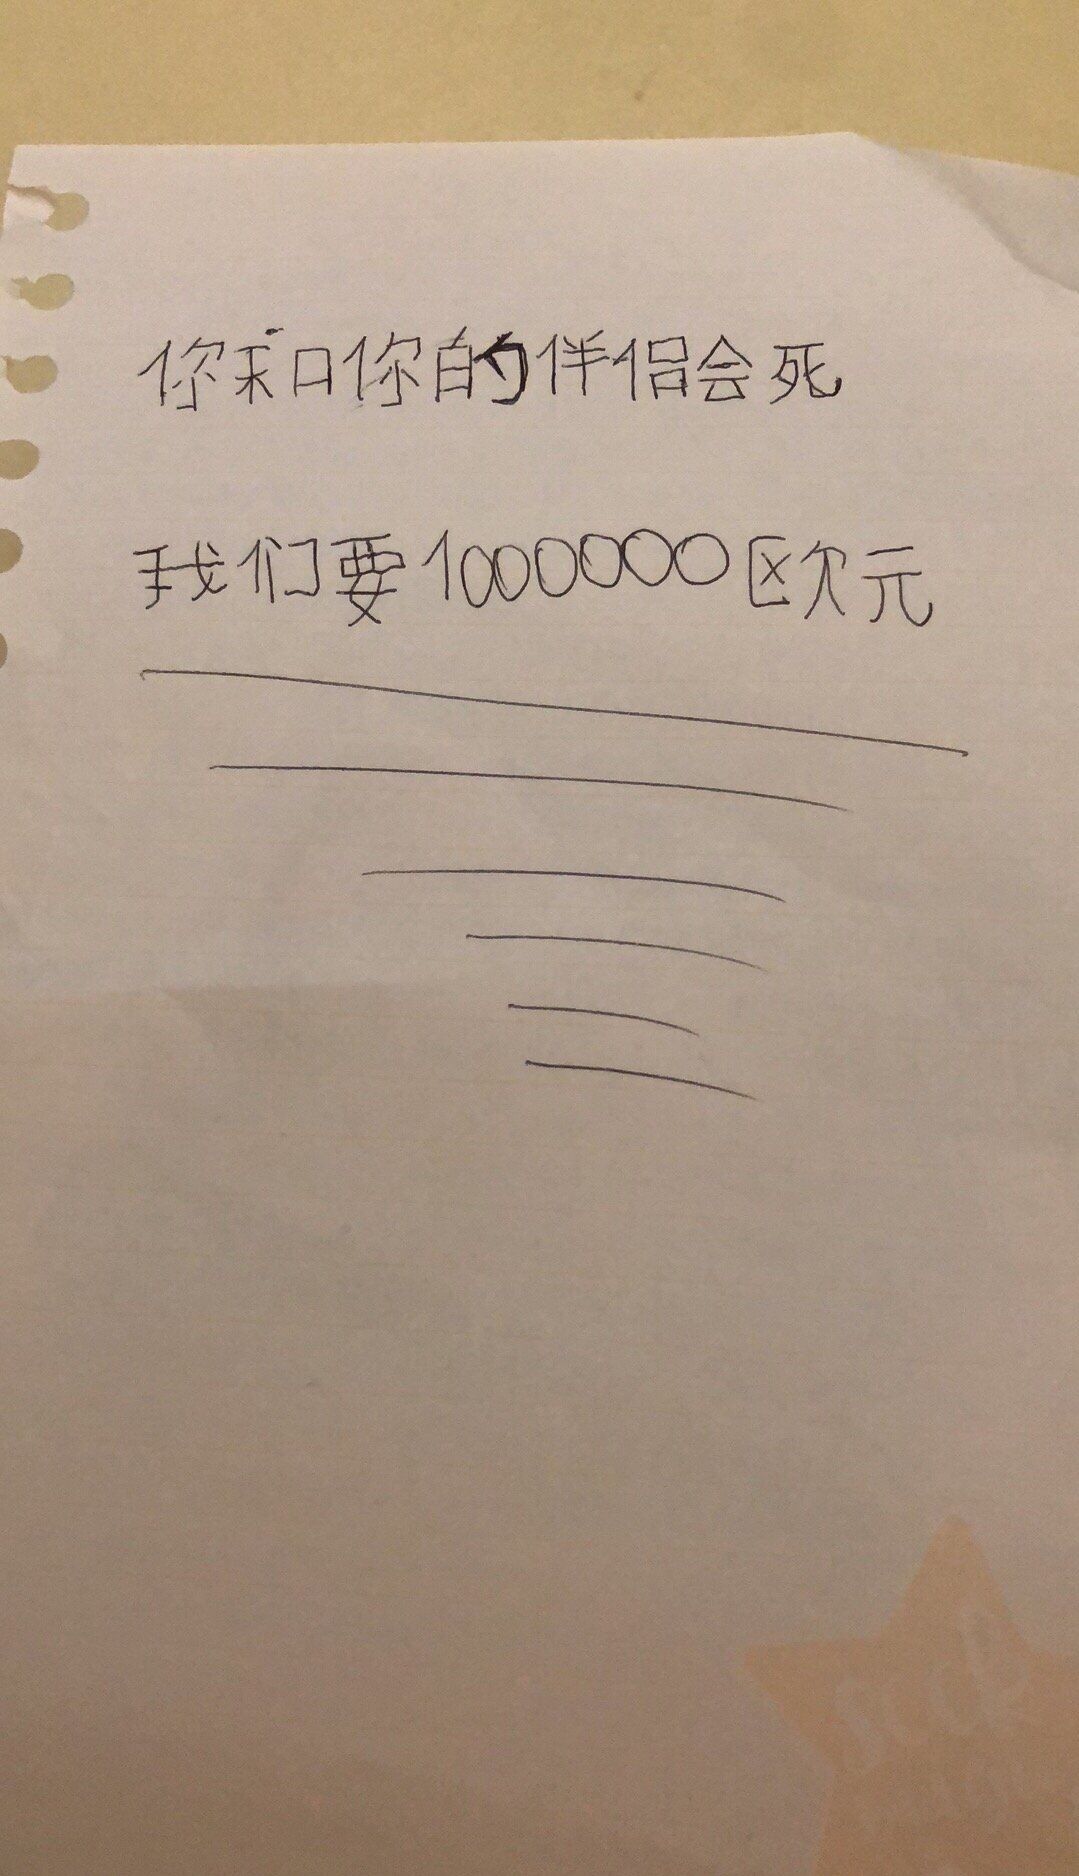 你和你的伴侣会死
我们要1000000欧元